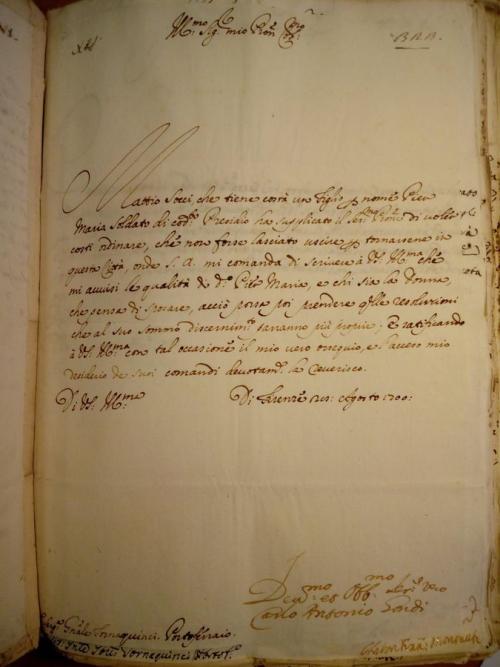 Ill:mo Sig: mio Pron: Col:mo
Mattio Socci, che tiene costà un figlio p nome Pier
Maria Soldato di cod:o Presidio ha supplicato il Ser:mo Pron:e di voler
costì ordinare, che non fosse lasciato uscire p tornarsene in
questa Città, onde S. A. mi comanda di scrivere à VS: Ill:ma che
mi avvisi le qualità di d:o Pier Maria, e chi sia la Donna,
che pensa di sposare, acciò possa poi prendere q:lle resoluzioni
che al suo sommo discernim:to saranno più proprie; E ratificando
à VS: Ill:ma con tal occasione il mio vero ossequio, e l'acceso mio
desiderio de suoi comandi devotam:te la reverisco.
Di VS: Ill:ma
Di Firenze Agosto 1700:
Dev:mo et Obb:mo Ser:re vero
Carlo Antonio Gondi
Tornaquinci. Portoferraio.